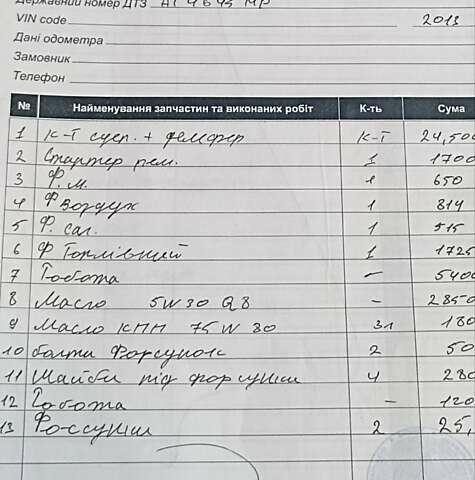 Державний номер ДТЗ AI 4693 MP
VIN code 2013
Дані одометра
Замовник
Телефон
№ Найменування запчастин та виконаних робіт К-ть Сума
1 К-Т сцеп. + демфер К-Т 24,500
2 Стартер рем. 1 1700
3 Ф. м. 1 650
4 Ф Воздух 1 814
5 Ф. сал. 1 515
6 Ф Топлівний 1 1725
7 Робота – 5400
8 Масло 5W30 Q8 – 2850
9 Масло КПП 75W 80 3л 180
10 болти Форсунок 2 50
11 Шайби під форсунки 4 280
12 Робота – 120
13 Форсунки 2 25,